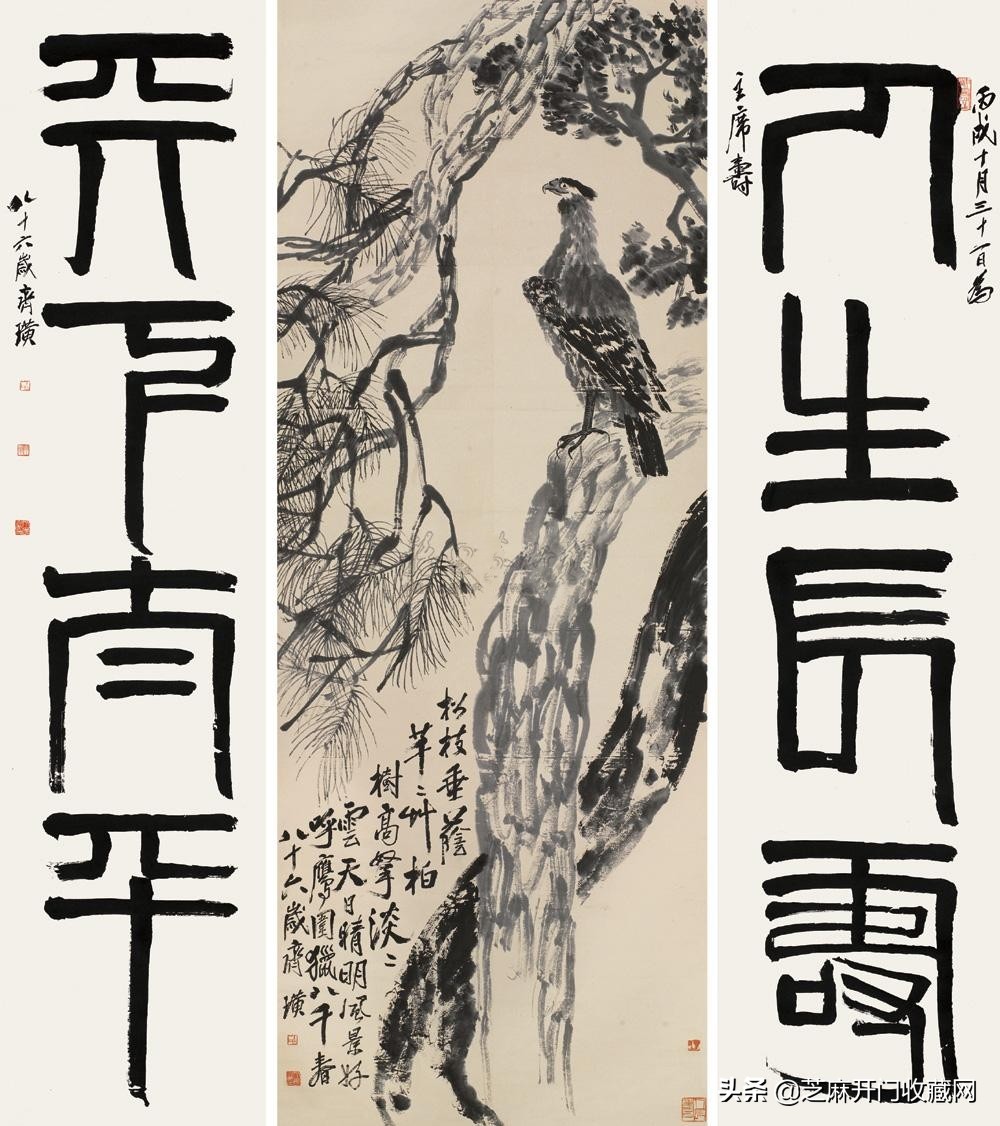 丙戌十月三十一日為
主席壽
人生長壽
松枝垂蔭
芊〻艸柏
樹高拏淡〻
雲天日晴明風景好
呼鷹圍獵八千春
八十六歲齊璜
天下太平
八十六歲齊璜
头条 @芝麻开门收藏网